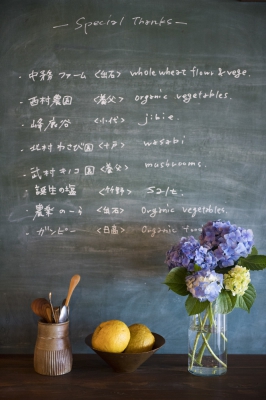 — Special Thanks —
・中谷ファーム <出石> whole wheat flour & vege.
・西村農園 <養父> organic vegetables.
・峰鹿谷 <小代> jibie.
・北村わさび園 <十戸> wasabi
・武村キノコ園 <養父> mushrooms.
・誕生の塩 <竹野> salt.
・農楽のーす <出石> Organic vegetables.
・ガンピー <日高> Organic